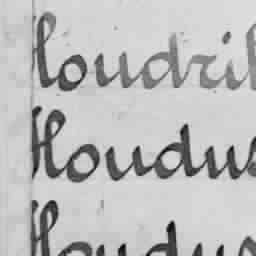 Houdril
Houdus
Houdus